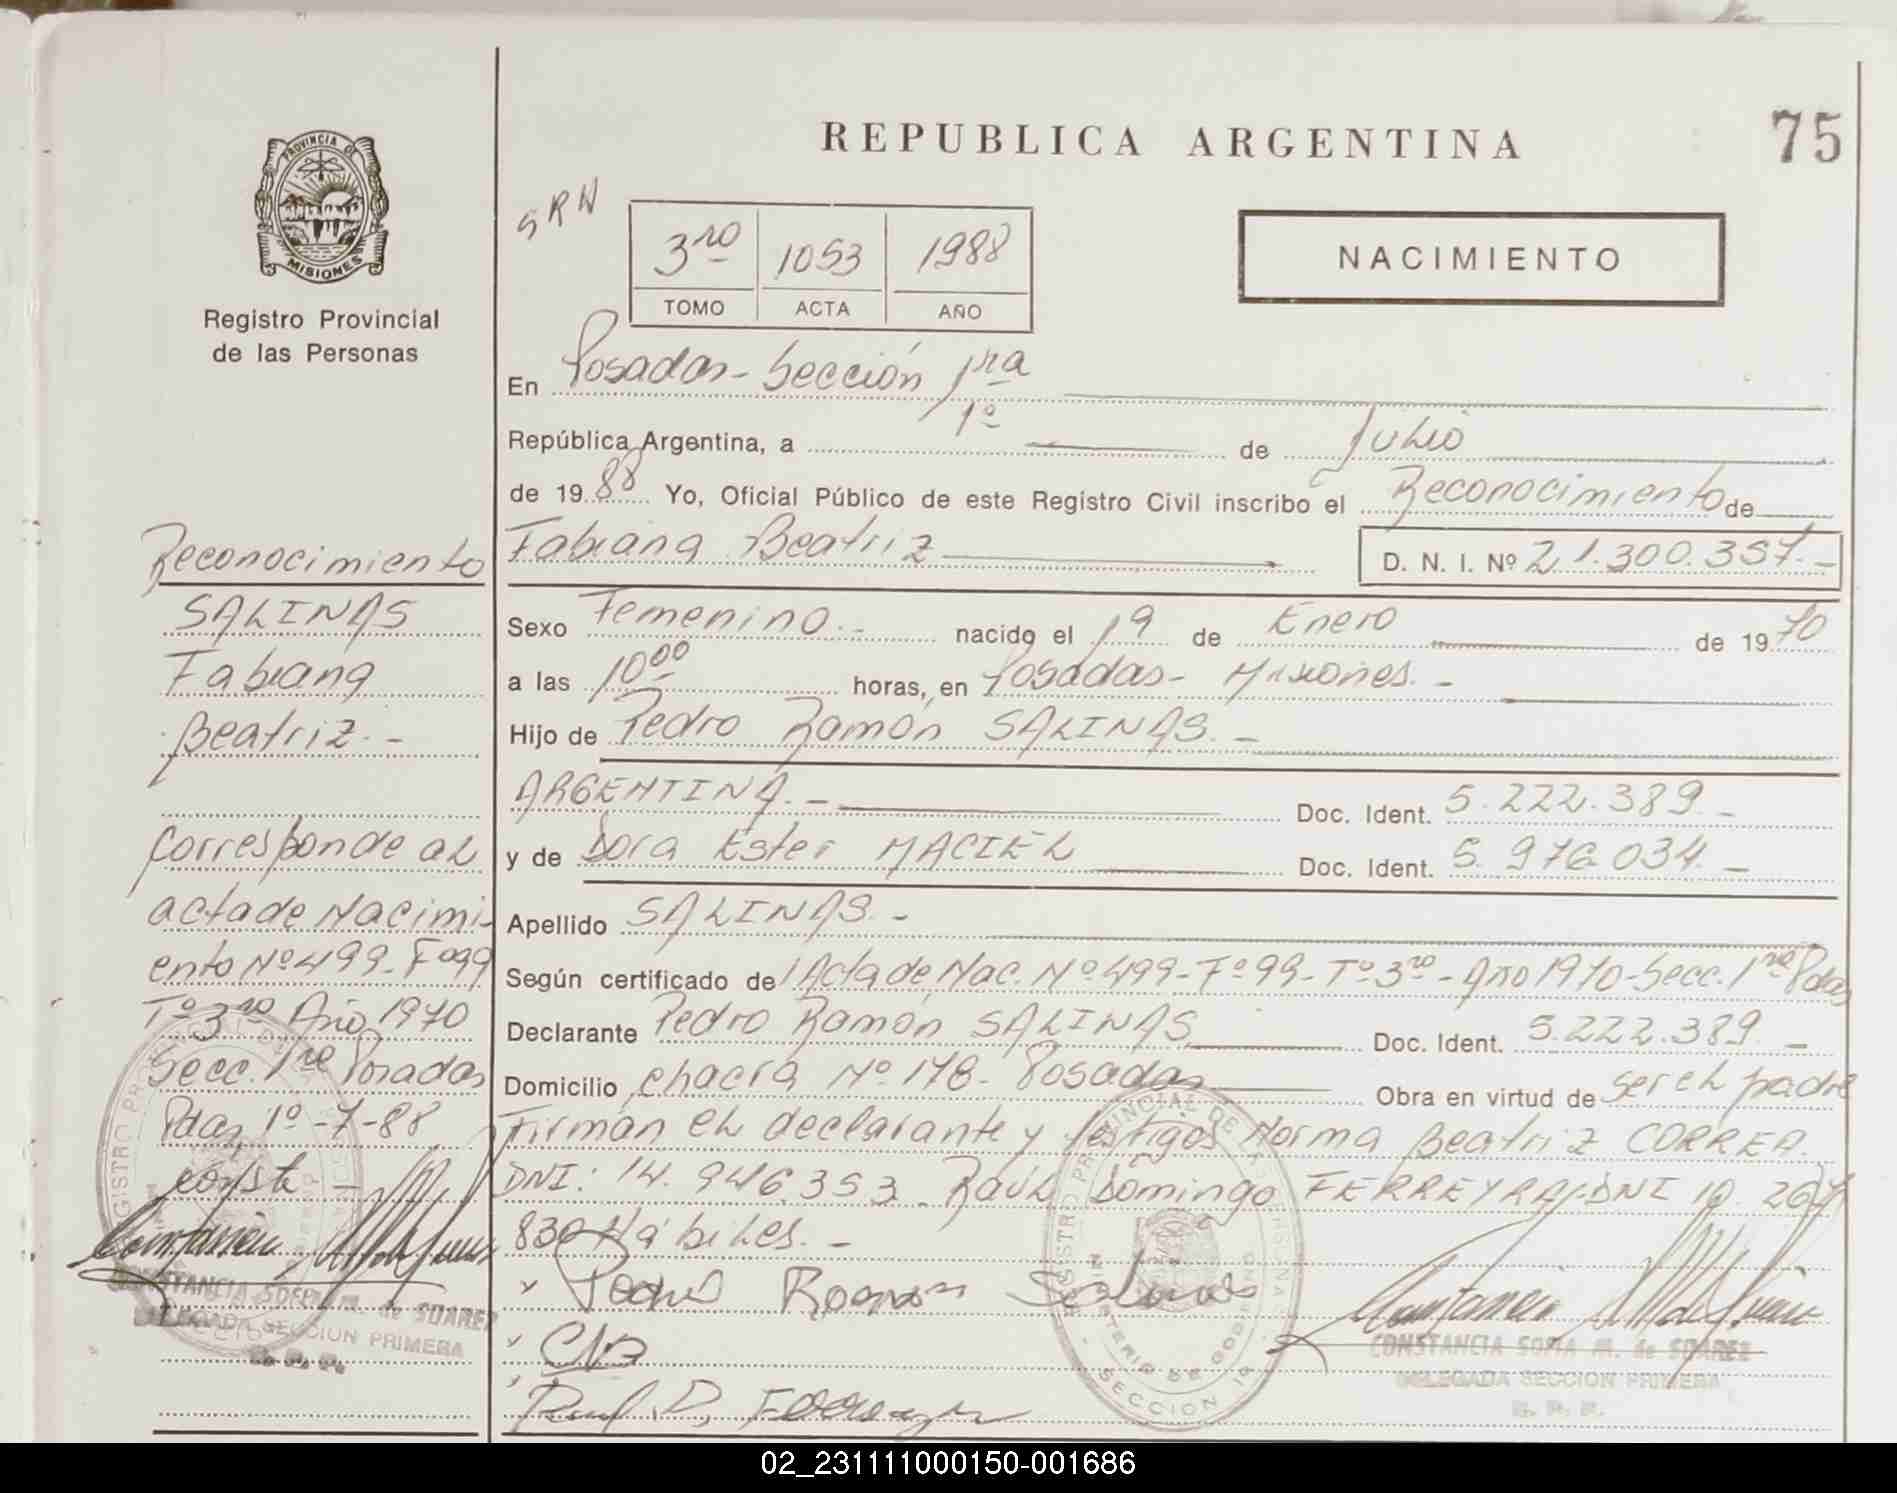 REPUBLICA ARGENTINA
75
PROVINCIA DE
MISIONES
Registro Provincial
de las Personas
SRN
3ro 1053 1988
TOMO ACTA AÑO
NACIMIENTO
En Posadas - Sección 1ra
República Argentina, a 1º de Julio
de 1988 Yo, Oficial Público de este Registro Civil inscribo el Reconocimiento de
Fabiana Beatriz D. N. I. Nº 21.300.357.-
Sexo Femenino.- nacido el 19 de Enero de 1970
a las 10 00 horas, en Posadas - Misiones.-
Hijo de Pedro Ramón SALINAS.-
ARGENTINA.- Doc. Ident. 5.222.389.-
y de Dora Ester MACIEL Doc. Ident. 5.976.034.-
Apellido SALINAS.-
Según certificado de Acta de Nac. Nº 499-Fº 99-Tº 3ro-Año 1970-Secc. 1ra Pdas
Declarante Pedro Ramón SALINAS Doc. Ident. 5.222.389.-
Domicilio chacra Nº 178- Posadas Obra en virtud de ser el padre
Firman el declarante y testigos Norma Beatriz CORREA.
DNI: 14.946.353. Raúl Domingo FERREYRA-DNI 10.207
830 Hábiles.-
Pedro Ramon Salinas
Raul D. Ferreyra
CONSTANCIA SOFIA M. de SUAREZ
DELEGADA SECCION PRIMERA
R. P. P.
Reconocimiento
SALINAS
Fabiana
Beatriz.-
Corresponde al
acta de Nacimi-
ento Nº 499-Fº 99
Tº 3ro Año 1970
Secc. 1ra Posadas
Pdas, 1º-7-88
conste -
CONSTANCIA SOFIA M. de SUAREZ
DELEGADA SECCION PRIMERA
R. P. P.
02_231111000150-001686